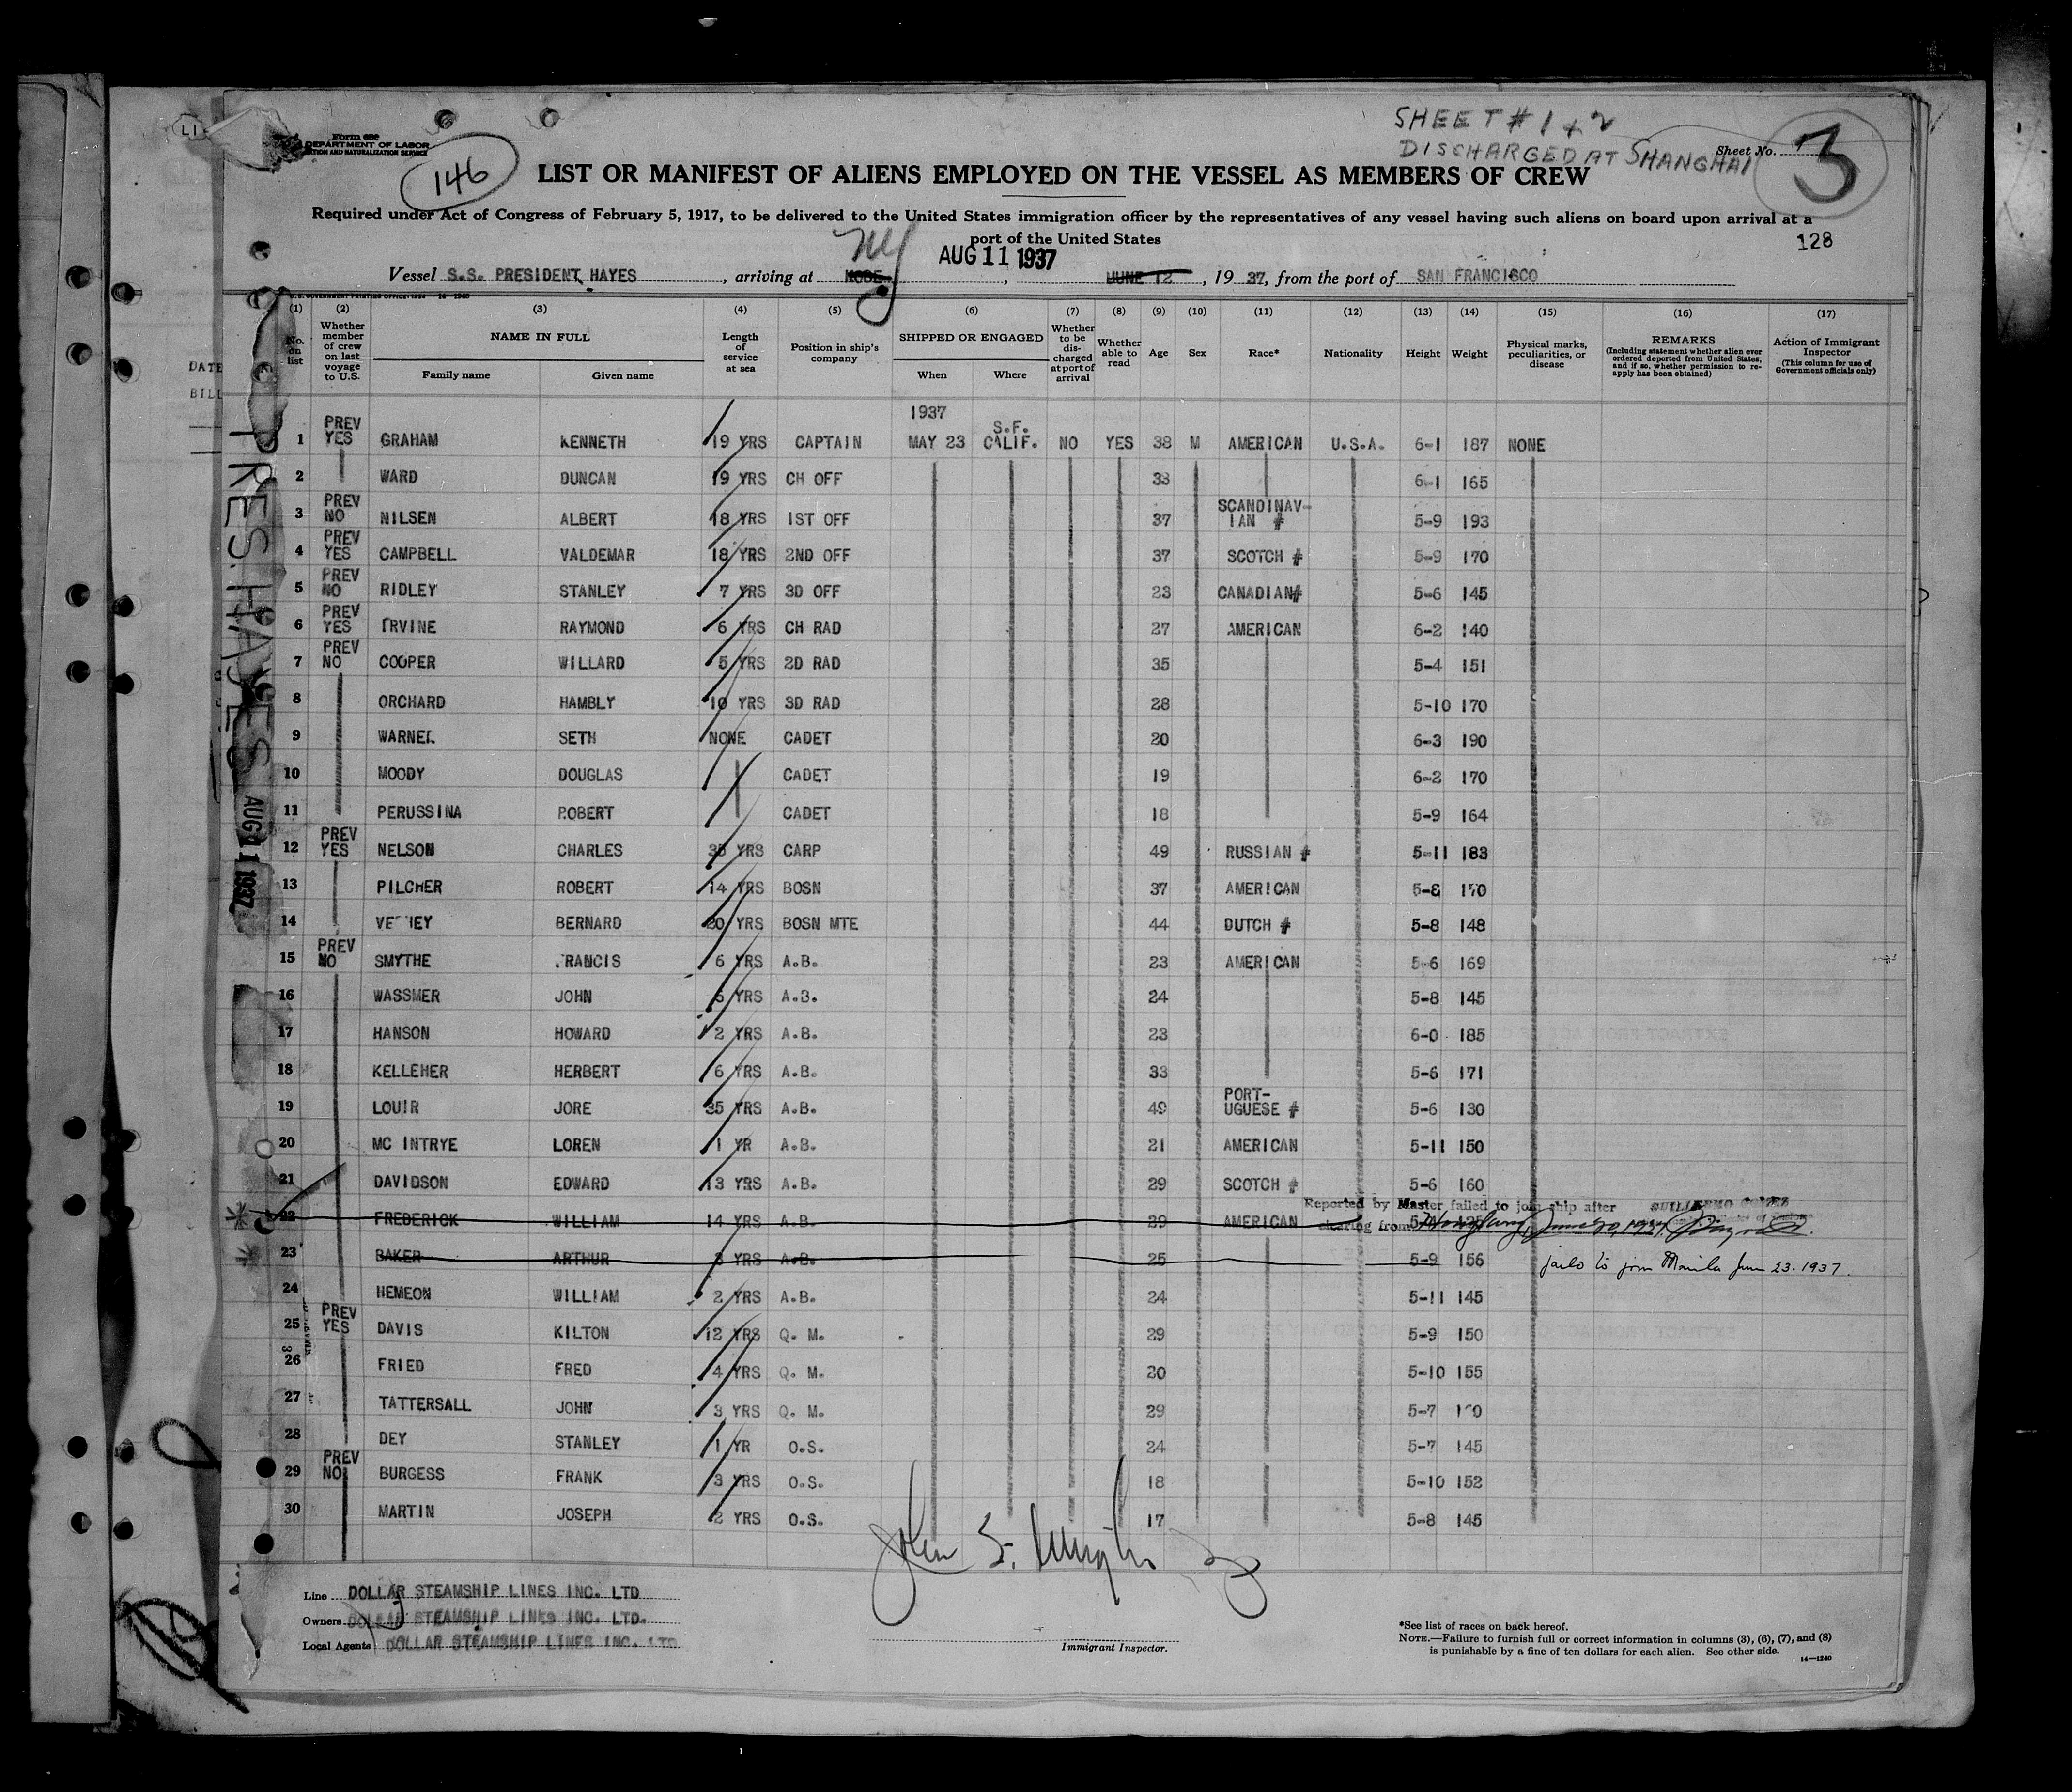 LI
Form 680
DEPARTMENT OF LABOR
146
SHEET # 1 + 2
DISCHARGED AT SHANGHAI
Sheet No.
3
LIST OR MANIFEST OF ALIENS EMPLOYED ON THE VESSEL AS MEMBERS OF CREW
Required under Act of Congress of February 5, 1917, to be delivered to the United States immigration officer by the representatives of any vessel having such aliens on board upon arrival at a
port of the United States
128
NY
AUG 11 1937
Vessel S.S. PRESIDENT HAYES, arriving at KOBE, JUNE 12, 19 37, from the port of SAN FRANCISCO
(1) (2) (3) (4) (5) (6) (7) (8) (9) (10) (11) (12) (13) (14) (15) (16) (17)
No. on list
Whether member of crew on last voyage to U.S.
NAME IN FULL
Family name Given name
Length of service at sea
Position in ship's company
SHIPPED OR ENGAGED
When Where
Whether to be discharged at port of arrival
Whether able to read
Age
Sex
Race*
Nationality
Height
Weight
Physical marks, peculiarities, or disease
REMARKS
(Including statement whether alien ever ordered deported from United States, and if so, whether permission to reapply has been obtained)
Action of Immigrant Inspector
(This column for use of Government officials only)
DATE
BILL
PRES. HAYES
AUG 11 1937
1 PREV YES GRAHAM KENNETH 19 YRS CAPTAIN 1937 MAY 23 S.F. CALIF. NO YES 38 M AMERICAN U.S.A. 6-1 187 NONE
2 WARD DUNCAN 19 YRS CH OFF 38 6-1 165
3 PREV NO NILSEN ALBERT 18 YRS 1ST OFF 37 SCANDINAV-IAN # 5-9 193
4 PREV YES CAMPBELL VALDEMAR 18 YRS 2ND OFF 37 SCOTCH # 5-9 170
5 PREV NO RIDLEY STANLEY 7 YRS 3D OFF 23 CANADIAN# 5-6 145
6 PREV YES IRVINE RAYMOND 6 YRS CH RAD 27 AMERICAN 6-2 140
7 PREV NO COOPER WILLARD 5 YRS 2D RAD 35 5-4 151
8 ORCHARD HAMBLY 10 YRS 3D RAD 28 5-10 170
9 WARNER SETH NONE CADET 20 6-3 190
10 MOODY DOUGLAS CADET 19 6-2 170
11 PERUSSINA ROBERT CADET 18 5-9 164
12 PREV YES NELSON CHARLES 35 YRS CARP 49 RUSSIAN # 5-11 183
13 PILCHER ROBERT 14 YRS BOSN 37 AMERICAN 5-8 170
14 BERNARD 20 YRS BOSN MTE 44 DUTCH # 5-8 148
15 PREV NO SMYTHE FRANCIS 6 YRS A.B. 23 AMERICAN 5-6 169
16 WASSMER JOHN 5 YRS A.B. 24 5-8 145
17 HANSON HOWARD 2 YRS A.B. 23 6-0 185
18 KELLEHER HERBERT 6 YRS A.B. 33 5-6 171
19 LOUIR JORE 35 YRS A.B. 49 PORT-UGUESE # 5-6 130
20 MC INTRYE LOREN 1 YR A.B. 21 AMERICAN 5-11 150
21 DAVIDSON EDWARD 13 YRS A.B. 29 SCOTCH # 5-6 160
22 FREDERICK WILLIAM 14 YRS A.B. 39 AMERICAN Reported by Master failed to join ship after clearing from Hongkong, June 20, 1937. GUILLERMO GOMEZ
23 BAKER ARTHUR 3 YRS A.B. 25 5-9 156 fails to join Manila June 23. 1937.
24 HEMEON WILLIAM 2 YRS A.B. 24 5-11 145
25 PREV YES DAVIS KILTON 12 YRS Q. M. 29 5-9 150
26 FRIED FRED 4 YRS Q. M. 30 5-10 155
27 TATTERSALL JOHN 3 YRS Q. M. 29 5-7
28 DEY STANLEY 1 YR O.S. 24 5-7 145
29 PREV NO BURGESS FRANK 3 YRS O.S. 18 5-10 152
30 MARTIN JOSEPH 2 YRS O.S. 17 5-8 145
Line DOLLAR STEAMSHIP LINES INC. LTD
Owners DOLLAR STEAMSHIP LINES INC. LTD.
Local Agents DOLLAR STEAMSHIP LINES INC. LTD
Immigrant Inspector.
*See list of races on back hereof.
NOTE.—Failure to furnish full or correct information in columns (3), (6), (7), and (8)
is punishable by a fine of ten dollars for each alien. See other side.
14—1240